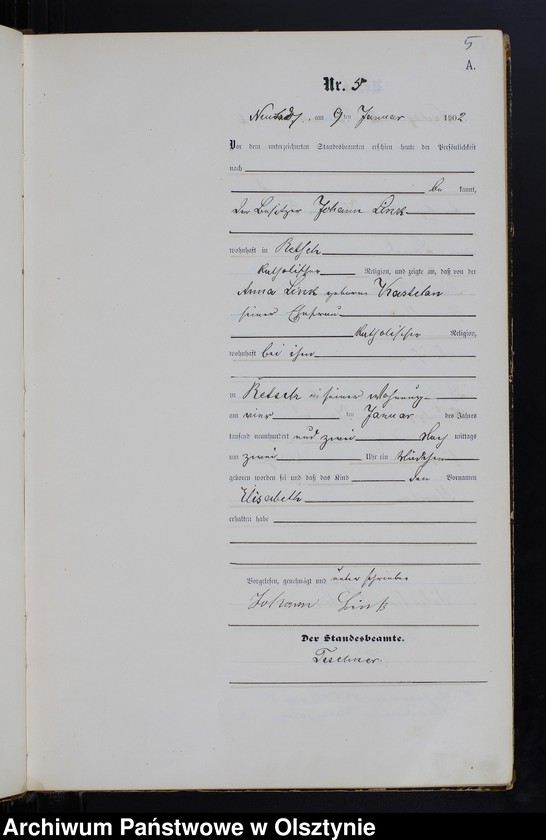 5
A.
Nr. 5
am 9ten Januar 1902
Vor dem unterzeichneten Standesbeamten erschien heute der Persönlichkeit
nach
be kannt,
der Besitzer Johann Link
wohnhaft in Retsch
katholischer Religion, und zeigte an, daß von der
Anna Link geborene Kastelan
seiner Ehefrau
katholischer Religion,
wohnhaft bei ihm
in Retsch in seiner Wohnung
am vier ten Januar des Jahres
tausend neunhundert und zwei Nach mittags
um zwei Uhr ein Mädchen
geboren worden sei und daß das Kind den Vornamen
Elisabeth
erhalten habe
Vorgelesen, genehmigt und unterschrieben
Johann Link
Der Standesbeamte.
Teschner.
Archiwum Państwowe w Olsztynie